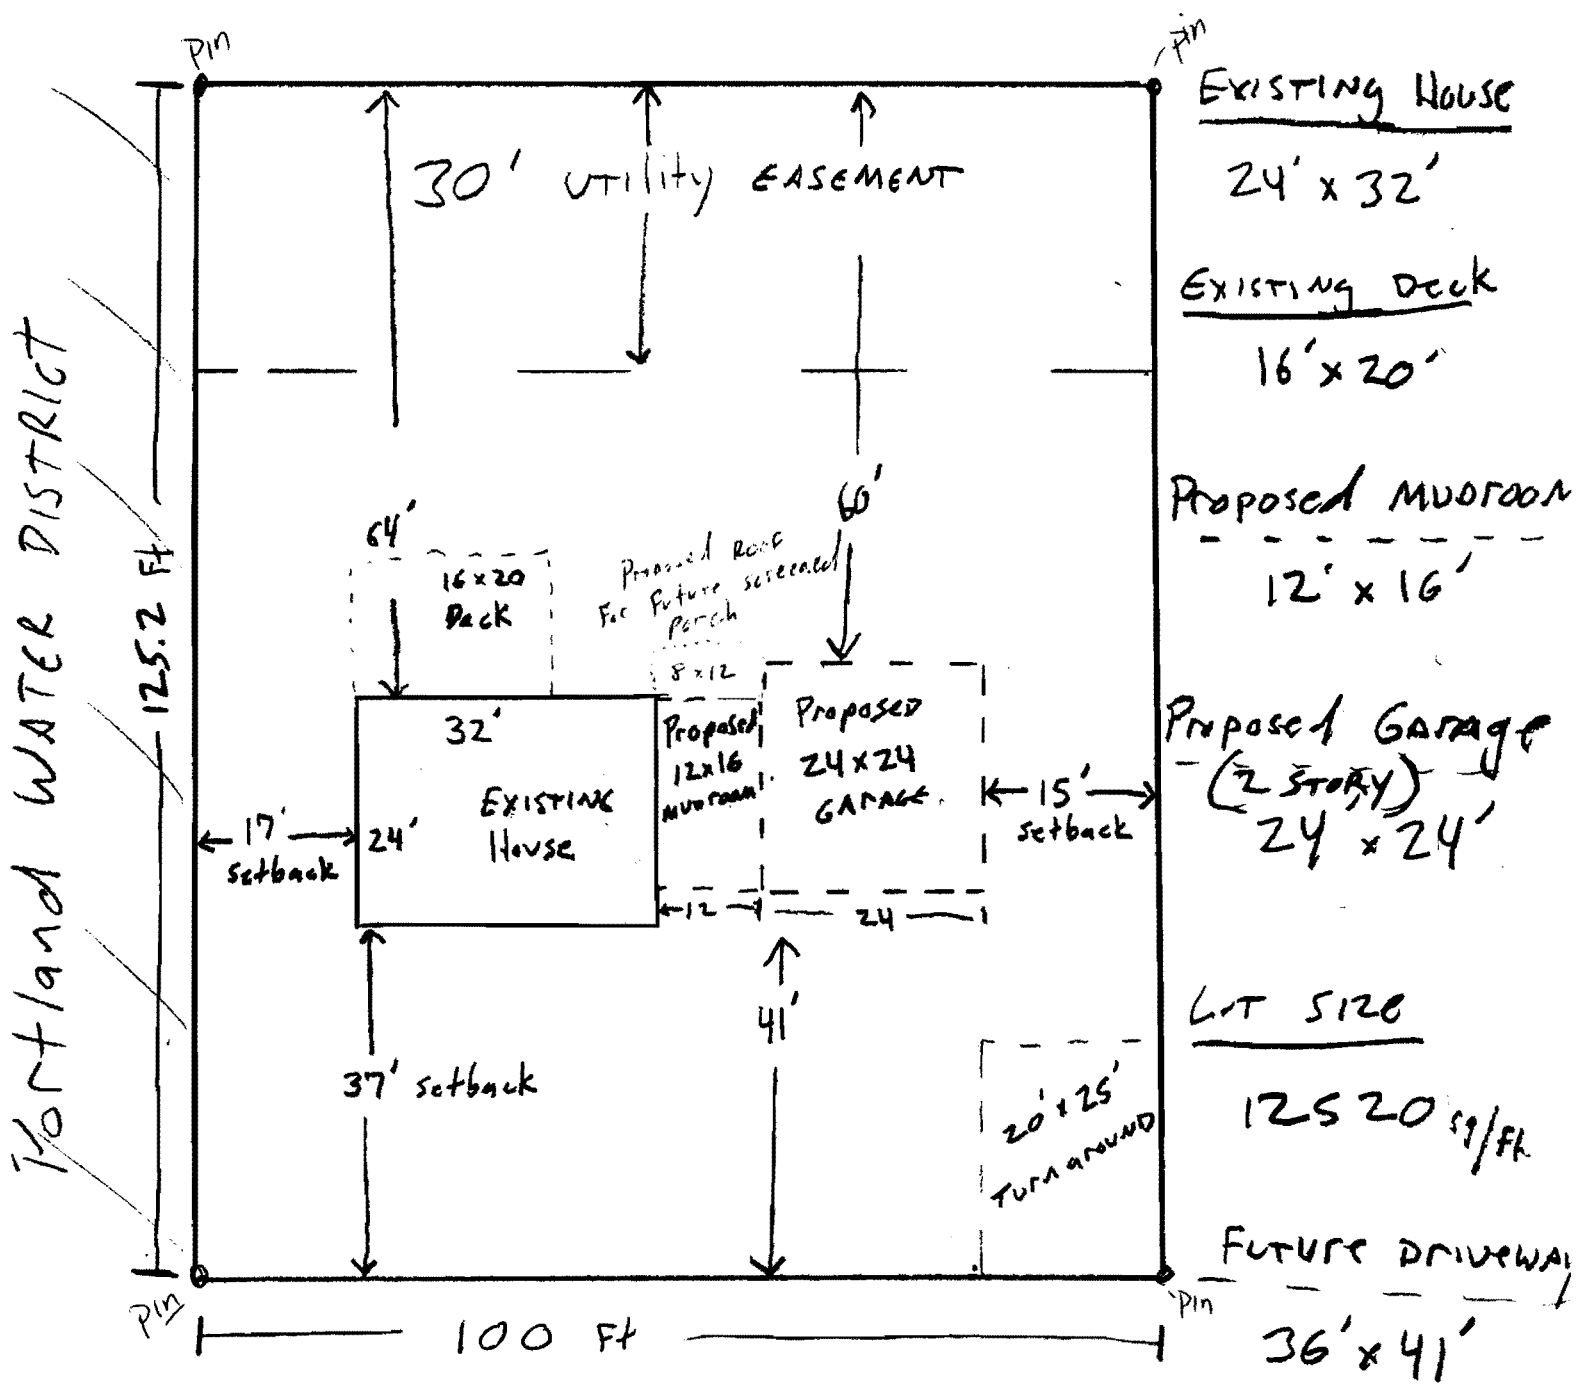 Pin
Pin
30' Utility EASEMENT
Portland WATER DISTRICT
125.2 Ft
64'
60'
16 x 20
Deck
Proposed Roof
For Future screened
Porch
8 x 12
32'
24'
EXISTING
House
Proposed
12x16
MUDROOM
Proposed
24 x 24
GARAGE
17'
setback
15'
setback
12
24
37' setback
41'
20' x 25'
Turnaround
Pin
Pin
100 Ft
EXISTING House
24' x 32'
EXISTING Deck
16' x 20'
Proposed MUDROOM
12' x 16'
Proposed Garage
(2 STORY)
24' x 24'
LOT SIZE
12520 sq/ft
Future Driveway
36' x 41'